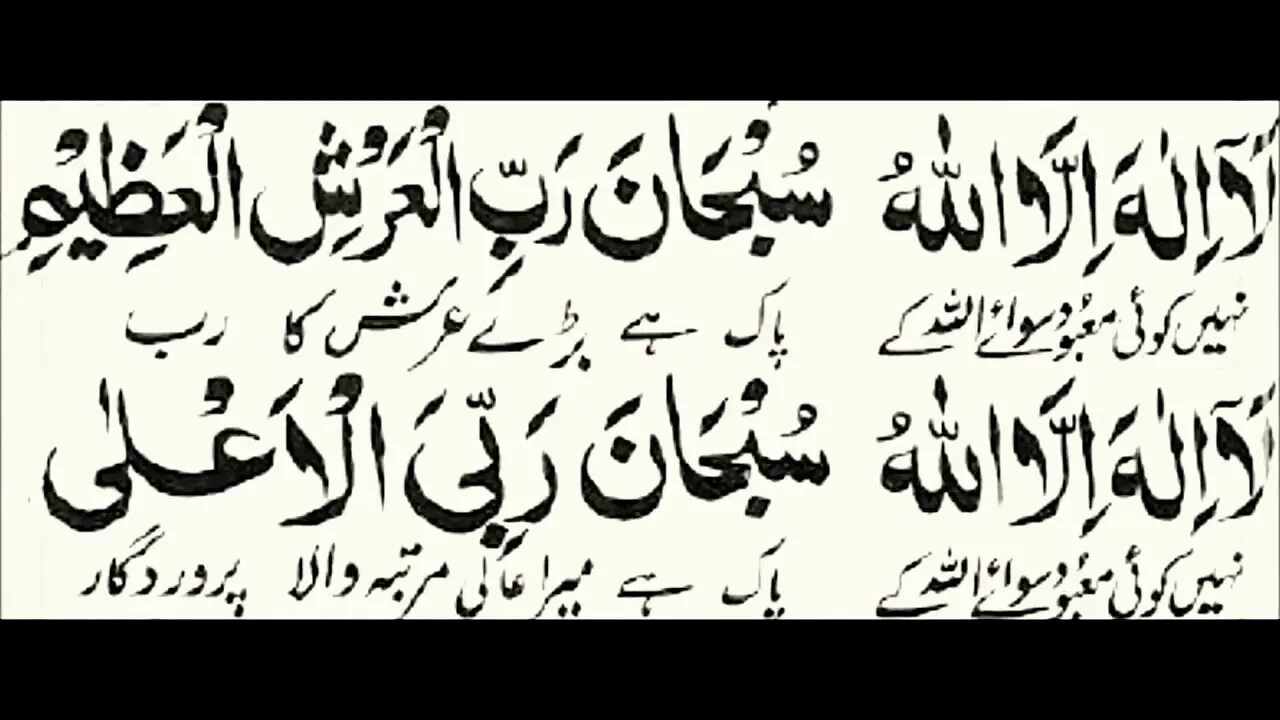 لَآ اِلٰهَ اِلَّا اللّٰهُ سُبْحَانَ رَبِّ الْعَرْشِ الْعَظِيْمِ
نہیں کوئی معبود سوائے اللہ کے پاک ہے بڑے عرش کا رب
لَآ اِلٰهَ اِلَّا اللّٰهُ سُبْحَانَ رَبِّیَ الْاَعْلٰی
نہیں کوئی معبود سوائے اللہ کے پاک ہے میرا عالی مرتبہ والا پروردگار